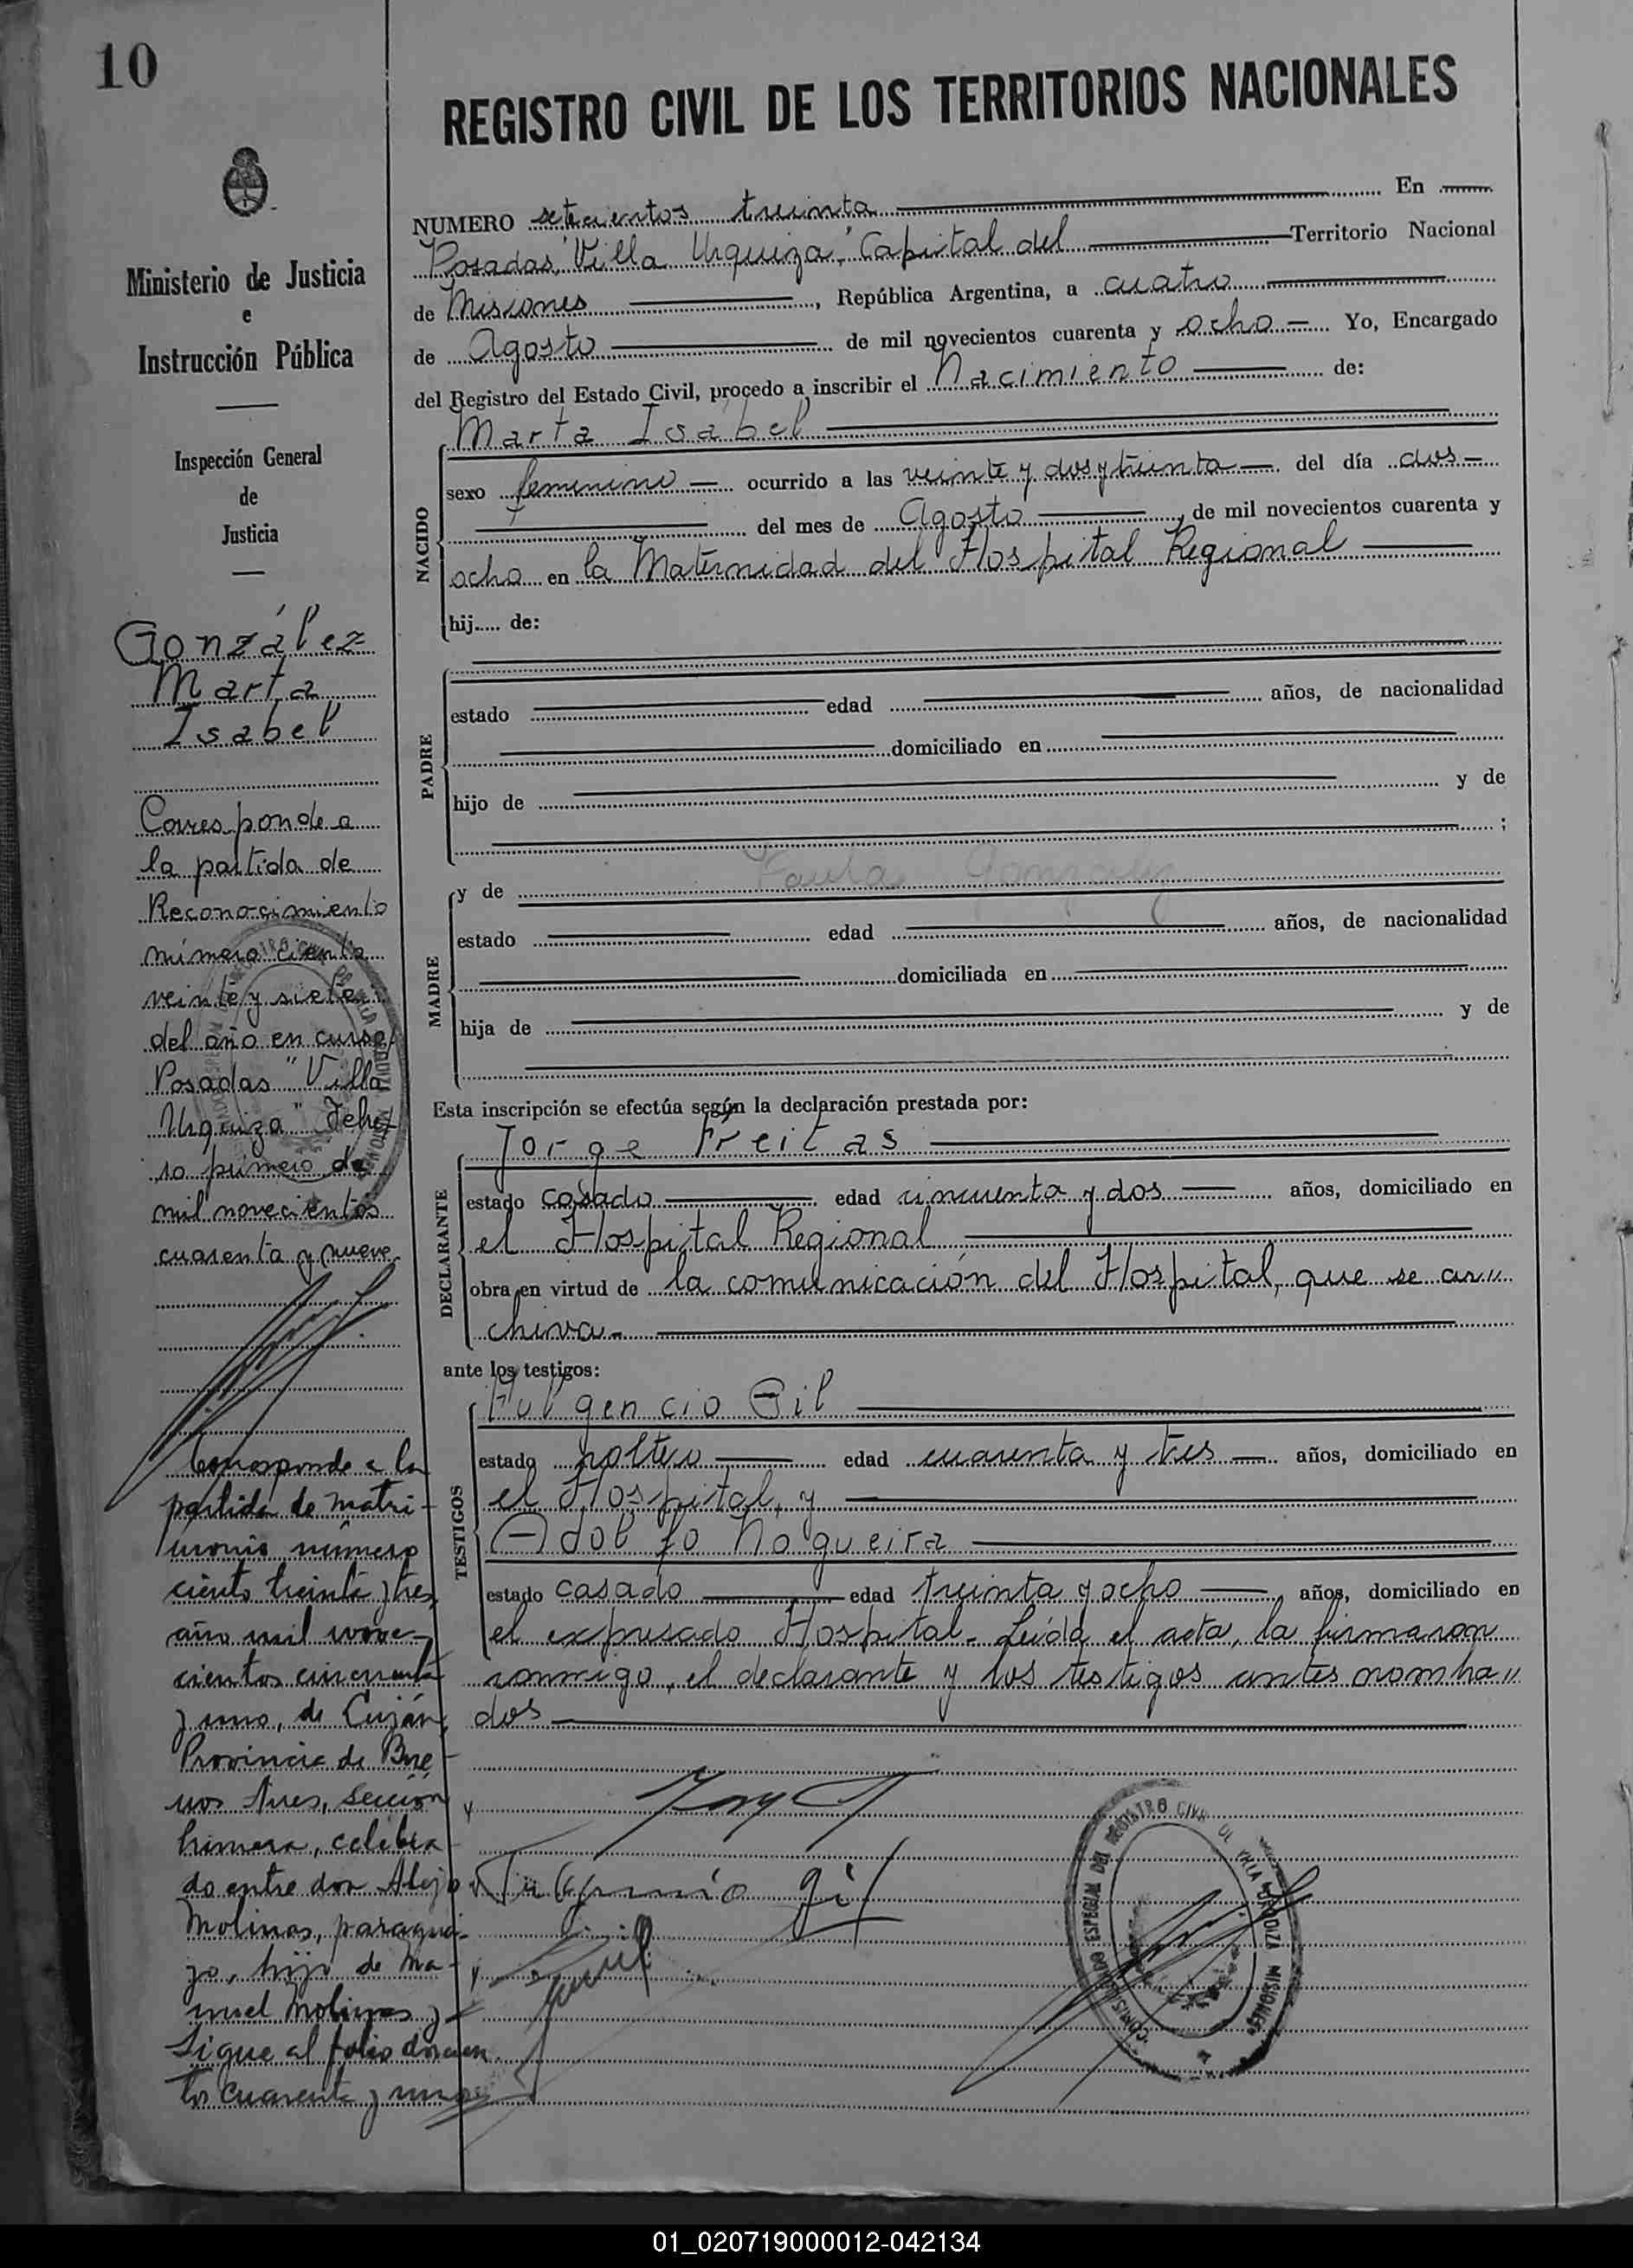 10
REGISTRO CIVIL DE LOS TERRITORIOS NACIONALES
Ministerio de Justicia
e
Instrucción Pública
Inspección General
de
Justicia
González
Marta
Isabel
Corresponde a
la partida de
Reconocimiento
número ciento
veinte y siete
del año en curso,
Posadas "Villa
Urquiza" Febre
ro primero de
mil novecientos
cuarenta y nueve.
Corresponde a la
partida de matri-
monio número
ciento treinta y tres,
año mil nove-
cientos cincuenta
y uno, de Luján,
Provincia de Bue-
nos Aires, Sección
Primera, celebra-
do entre don Alejo
Molinas, paragua-
yo, hijo de Ma-
nuel Molinas y
Sigue al folio doscien
tos cuarenta y uno
NUMERO setecientos treinta En
Posadas, "Villa Urquiza", Capital del Territorio Nacional
de Misiones, República Argentina, a cuatro
de Agosto de mil novecientos cuarenta y ocho Yo, Encargado
del Registro del Estado Civil, procedo a inscribir el Nacimiento de:
Marta Isabel
NACIDO
sexo femenino ocurrido a las veinte y dos y treinta del día dos
del mes de Agosto, de mil novecientos cuarenta y
ocho en la Maternidad del Hospital Regional
hij..... de:
PADRE
estado edad años, de nacionalidad
domiciliado en
hijo de y de
;
MADRE
y de Paula Gonzalez
estado edad años, de nacionalidad
domiciliada en
hija de y de
Esta inscripción se efectúa según la declaración prestada por:
DECLARANTE
Jorge Freitas
estado casado edad cincuenta y dos años, domiciliado en
el Hospital Regional
obra en virtud de la comunicación del Hospital, que se ar"
chiva.-
ante los testigos:
TESTIGOS
Fulgencio Gil
estado soltero edad cuarenta y tres años, domiciliado en
el Hospital, y
Adolfo Nogueira
estado casado edad treinta y ocho años, domiciliado en
el expresado Hospital.- Leída el acta, la firmaron
conmigo, el declarante y los testigos antes nombra"
dos
Fulgencio Gil
REGISTRO CIVIL DE VILLA URQUIZA MISIONES
01_020719000012-042134